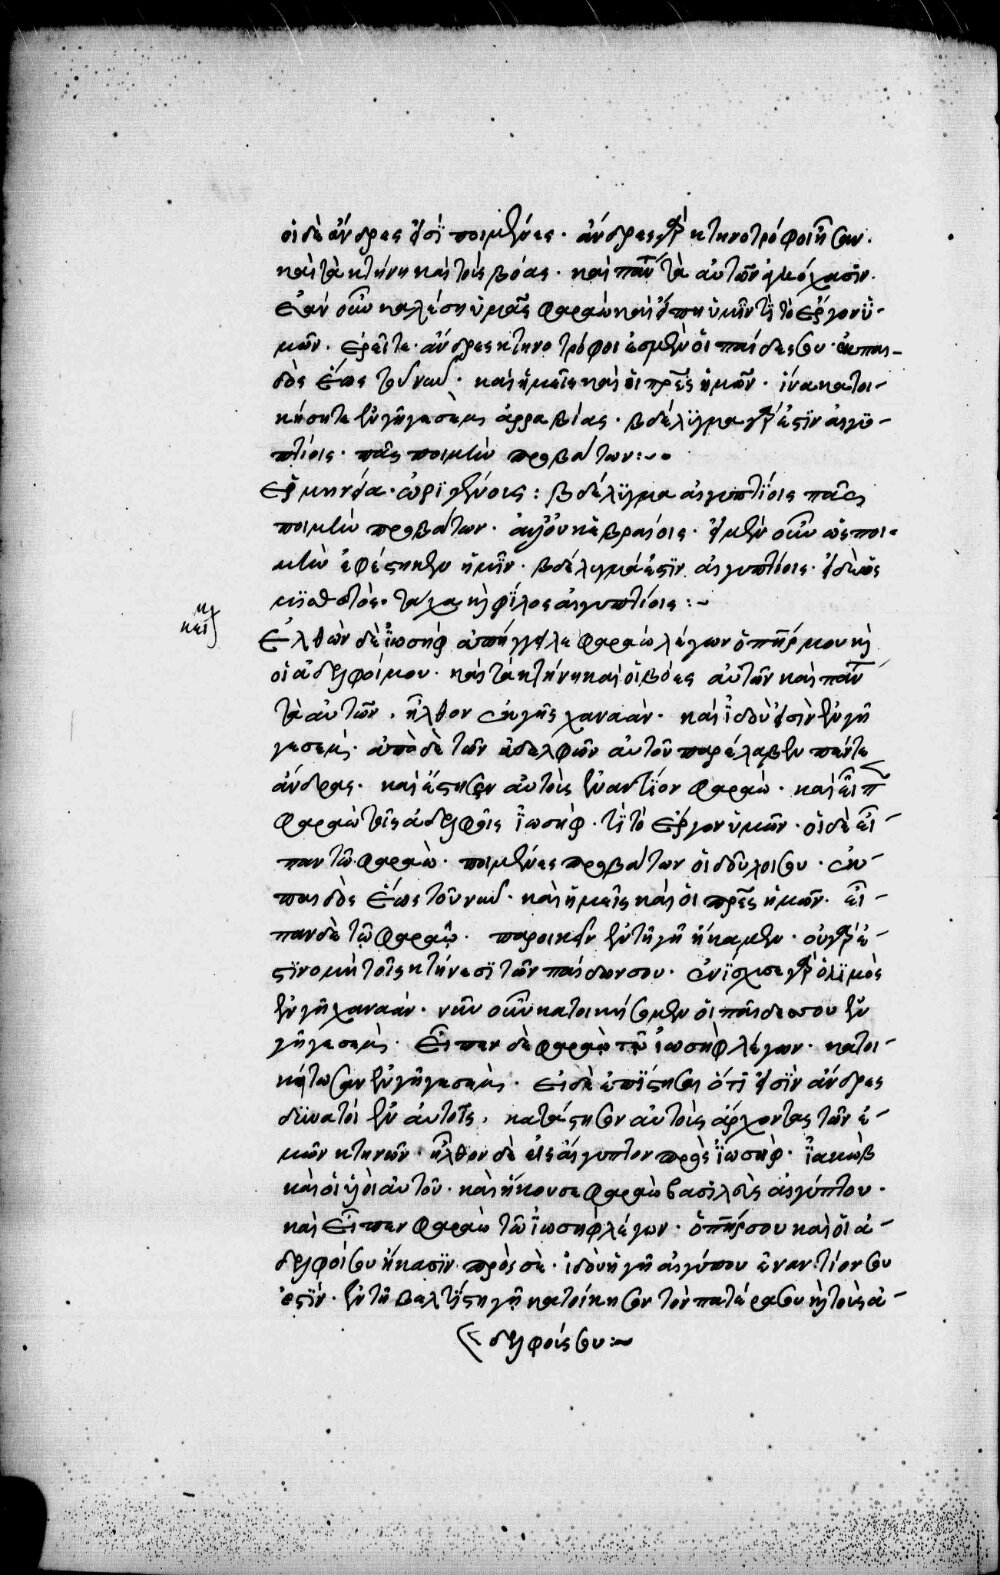 οἱ δὲ ἄνδρες εἰσὶ ποιμένες· ἄνδρες γὰρ κτηνοτρόφοι ἦσαν·
καὶ τὰ κτήνη καὶ τοὺς βόας· καὶ πάντα τὰ αὐτῶν ἀγιόχασιν·
Ἐὰν οὖν καλέση ὑμᾶς φαραὼ καὶ εἴπη ὑμῖν τί τὸ ἔργον ὑ-
μῶν· ἐρεῖτε· ἄνδρες κτηνοτρόφοι ἐσμὲν οἱ παῖδες σου· ἐκ παι-
δὸς ἕως τοῦ νῦν· καὶ ἡμεῖς καὶ οἱ πρες ἡμῶν· ἵνα κατοι-
κήσητε ἐν γῆ γεσὲμ ἀρραβίας· βδέλυγμα γάρ ἐστιν αἰγυ-
πτίοις· πᾶς ποιμὴν προβάτων:~
Ἑρμηνεία· ὠριγένους: βδέλυγμα αἰγυπτίοις πᾶς
ποιμὴν προβάτων· ἀλλ' οὐκ ἑβραίοις· εἰ μὲν οὖν ὡς ποι-
μὴν ἐφέστηκεν ἡμῖν· βδέλυγμά ἐστιν αἰγυπτίοις· εἰ δὲ ὡς
μισθωτός· τάχα καὶ φίλος αἰγυπτίοις:~
κεί
Ἐλθὼν δὲ ἰωσὴφ ἀπήγγειλε φαραὼ λέγων ὁ πήρ μου καὶ
οἱ ἀδελφοί μου· καὶ τὰ κτήνη καὶ οἱ βόες αὐτῶν καὶ πάν
τὰ αὐτῶν· ἦλθον ἐκ γῆς χαναάν· καὶ ἰδοὺ εἰσὶν ἐν γῆ
γεσεμ· ἀπὸ δὲ τῶν ἀδελφῶν αὐτοῦ παρέλαβεν πέντε
ἄνδρας· καὶ ἔστησεν αὐτοὺς ἐναντίον φαραώ· καὶ εἶπ
φαραὼ τοῖς ἀδελφοῖς ἰωσήφ· τί τὸ ἔργον ὑμῶν· οἱ δὲ εἶ-
παν τῶ φαραώ· ποιμένες προβάτων οἱ δοῦλοι σου· ἐκ
παιδὸς ἕως τοῦ νῦν· καὶ ἡμεῖς καὶ οἱ πρες ἡμῶν· εἶ-
παν δὲ τῶ φαραώ· παροικεῖν ἐν τῆ γῆ ἥκαμεν· οὐ γάρ ἐ-
στιν νομὴ τοῖς κτήνεσι τῶν παίδων σου· ἐνίσχισε γὰρ ὁ λιμὸς
ἐν γῆ χαναάν· νῦν οὖν κατοικήσωμεν οἱ παῖδες σου ἐν
γῆ γεσεμ· Εἶπεν δὲ φαραὼ τῶ ἰωσὴφ λέγων· κατοι-
κείτωσαν ἐν γῆ γεσεμ· εἰ δὲ ἐπίστησαι ὅτι εἰσὶν ἄνδρες
δυνατοὶ ἐν αὐτοῖς, κατάστησον αὐτοὺς ἄρχοντας τῶν ἐ-
μῶν κτηνῶν· ἦλθον δὲ εἰς αἴγυπτον πρὸς ἰωσήφ· ἰακὼβ
καὶ οἱ υἱοὶ αὐτοῦ· καὶ ἤκουσε φαραὼ βασιλεὺς αἰγύπτου·
καὶ εἶπεν φαραὼ τῶ ἰωσὴφ λέγων· ὁ πήρ σου καὶ οἱ ἀ-
δελφοί σου ἥκασιν πρὸς σέ· ἰδοὺ ἡ γῆ αἰγύπτου ἐναντίον σου
ἐστίν· ἐν τῆ βελτίστη γῆ κατοίκησον τὸν πατέρα σου καὶ τοὺς ἀ-
δελφούς σου:~